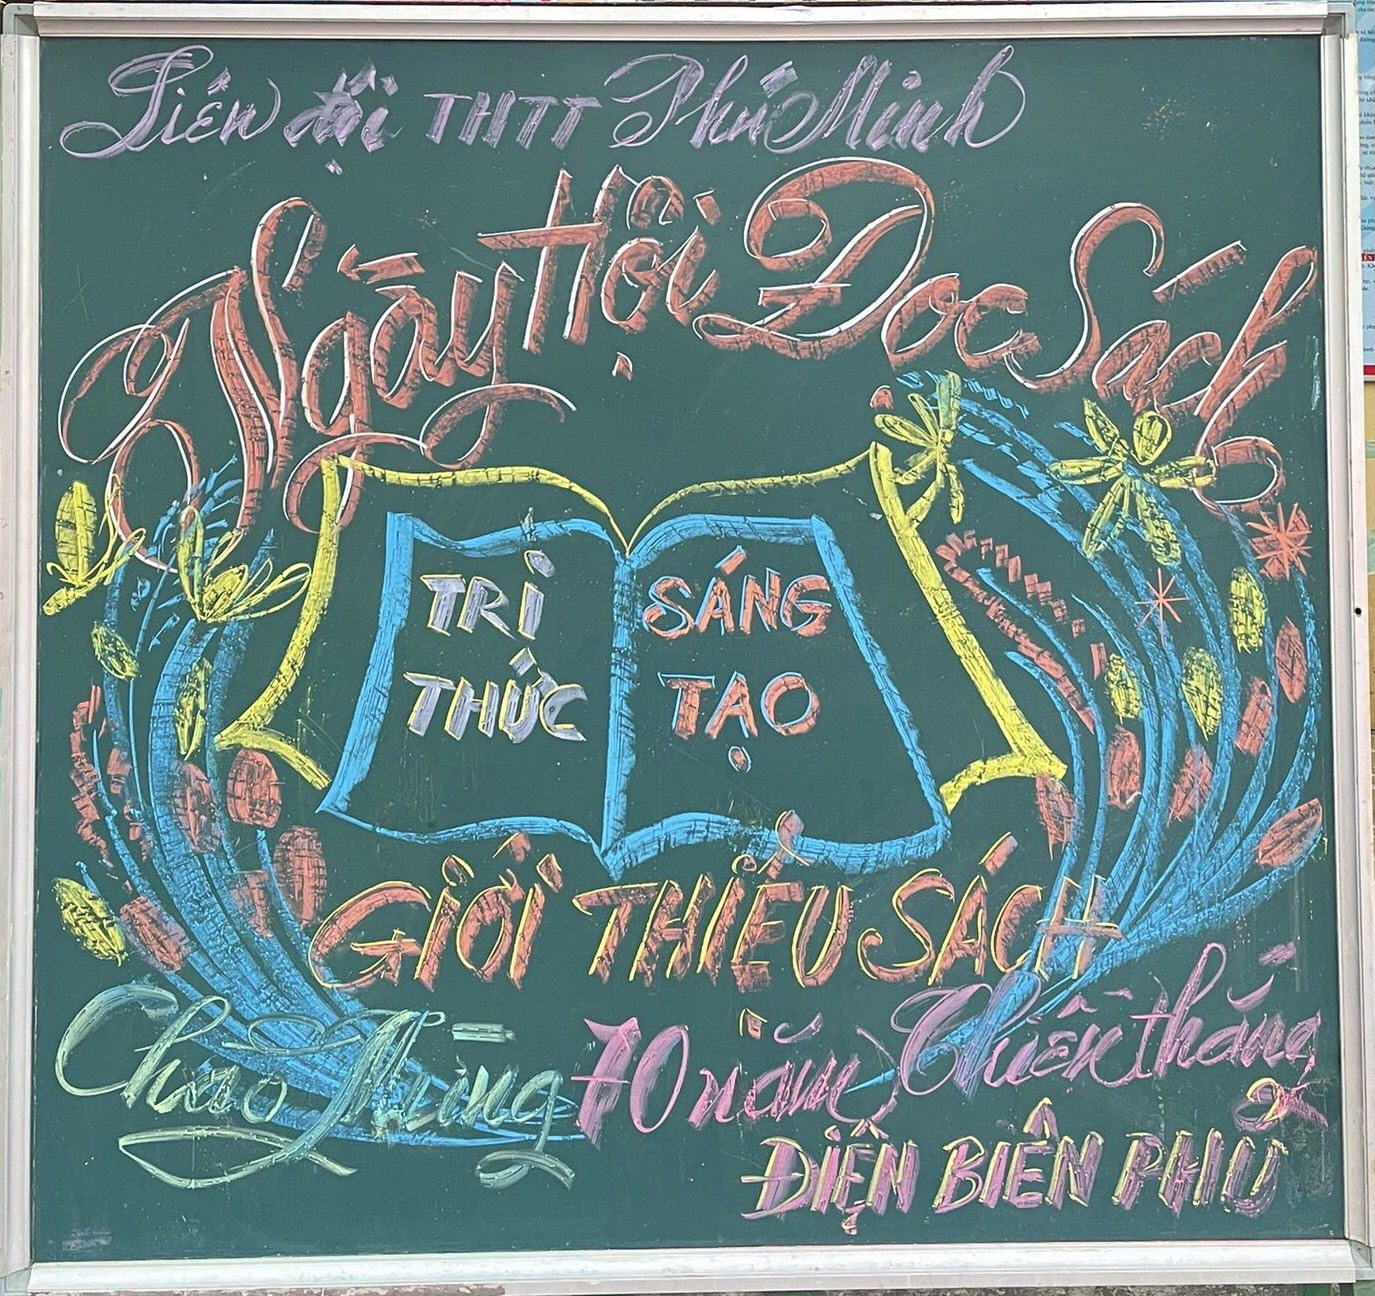 Liên đội THTT Phú Minh
Ngày Hội Đọc Sách
TRI
THỨC
SÁNG
TẠO
GIỚI THIỆU SÁCH
Chào Mừng 70 năm Chiến thắng
ĐIỆN BIÊN PHỦ